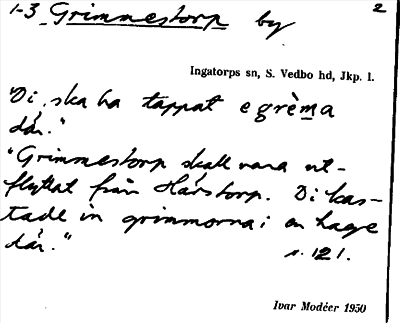 1-3 Grimmestorp by 2
Ingatorps sn, S. Vedbo hd, Jkp. l.
"Di ska ha tappat e grèma
där."
"Grimmestorp skall vara ut-
flyttat från Hårstorp. Di kas-
tade in grimmorna i en hage
där." s. 121.
Ivar Modéer 1950